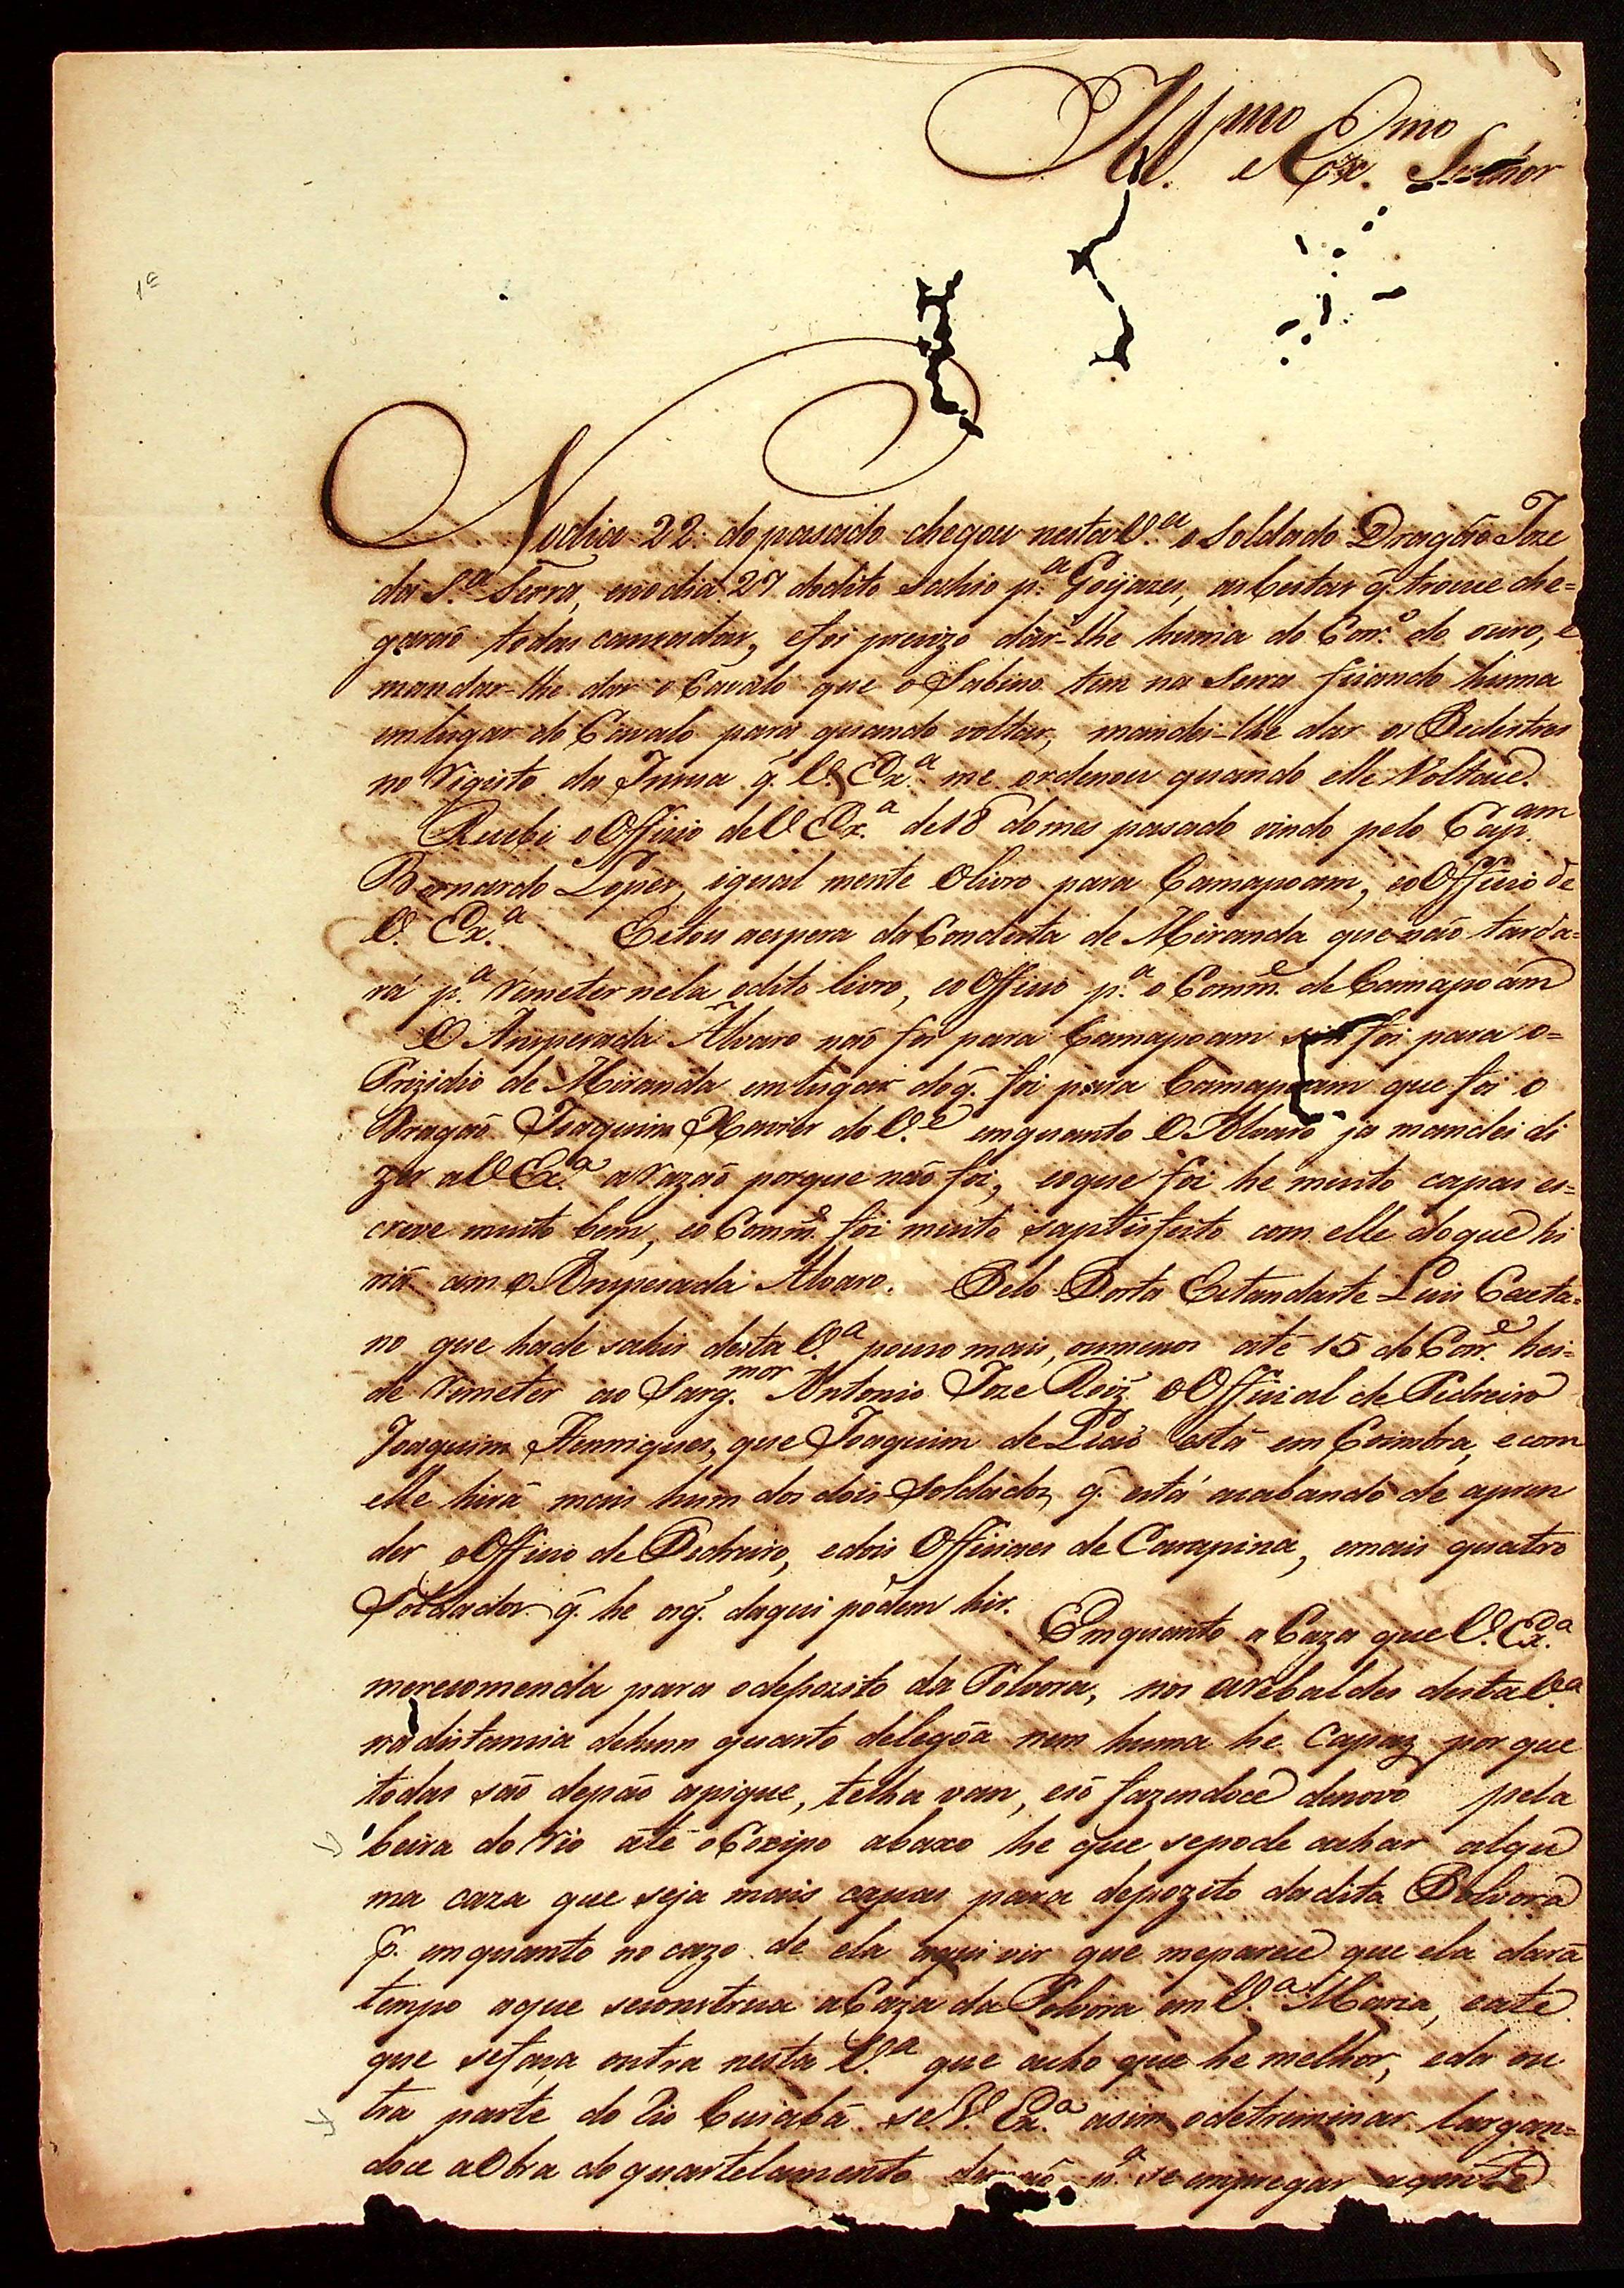 Ill.mo e Ex.mo Senhor
1ª
No dia 22 do pasado chegou nesta V.ª o Soldado Dragão Joze
da S.ª Serra, eno dia 27 do dito sahio p.ª Goyazes, as bestas q̃ trouce che=
garaõ todas cansadas, e foi precizo dar-lhe huma do Corr.º do ouro, e
mandar-lhe dar o Cavalo que o Sabino tem na Serra ficando huma
em lugar do Cavalo para quando voltar, mandei-lhe dar os Pedestres
no Rigisto da Insua q. V. Ex.ª me ordenou quando elle Voltace.
Recebi o Officio de V Ex.ª de 18 do mes pasado vindo pelo Cap.am
Bernardo Lopes, igual mente O livro para Camapoam, eo Officio de
V. Ex.ª Estou aespera da Conducta de Miranda que não tarda=
rá p.ª Remeter nela odito livro, eo Officio p.ª o Comm.e de Camapoam
O Anspesada Alvaro naõ foi para Camapoam sim foi para o=
Prizidio de Miranda em lugar do q̃. foi para Camapoam que foi o
Dragaõ Joaquim Xavier do V.e emquanto O Alvaro ja mandei di
zer a V Ex.ª a Razaõ porque não foi, eoque foi he muito capas es=
creve muito bem, eo Comm.e foi muito saptisfeito com elle doque hi
ria com o Anspesada Alvaro. Pelo Porta Estandarte Luis Caeta=
no que hade sahir desta V.ª pouco mais, oumenos até 15 do Corr.e hei=
de Remeter ao Sarg.mor Antonio Joze Roiz̃ o Official de Pedreiro
Joaquim Henriques, que Joaquim de Licio está em Coimbra, e com
elle hirá mais hum dos dois Soldados q̃. está acabando de apren
der o Officio de Pedreiro, e dois Officiaes de Carapina, emais quatro
Soldados q̃. he osq̃. daqui pódem hir.
Emquanto a Caza que V. Ex.ª
merecomenda para odepozito da Polvora, nos arebaldes desta V.ª
nadistancia dehum quarto delegoa nem huma he Capaz por que
todas são depáo apique, telha van, e só fazendoce denovo pela
beira do Rio até o Coxipo abaxo he que sepode achar algu
ma caza que seja mais capas para depozito dadita Polvora
p. emquanto no cazo de ela aqui vir que mepareie que ela dará
tempo aque seconstrua a Caza da Polvora em V.ª Maria, e ate
que sefaça outra nesta V.ª que acho que he melhor, e da ou
tra parte do Rio Cuiabá se V. Ex.ª asim odetreminar largan=
doce a Obra do quartelamento p.ª se empregar a gente